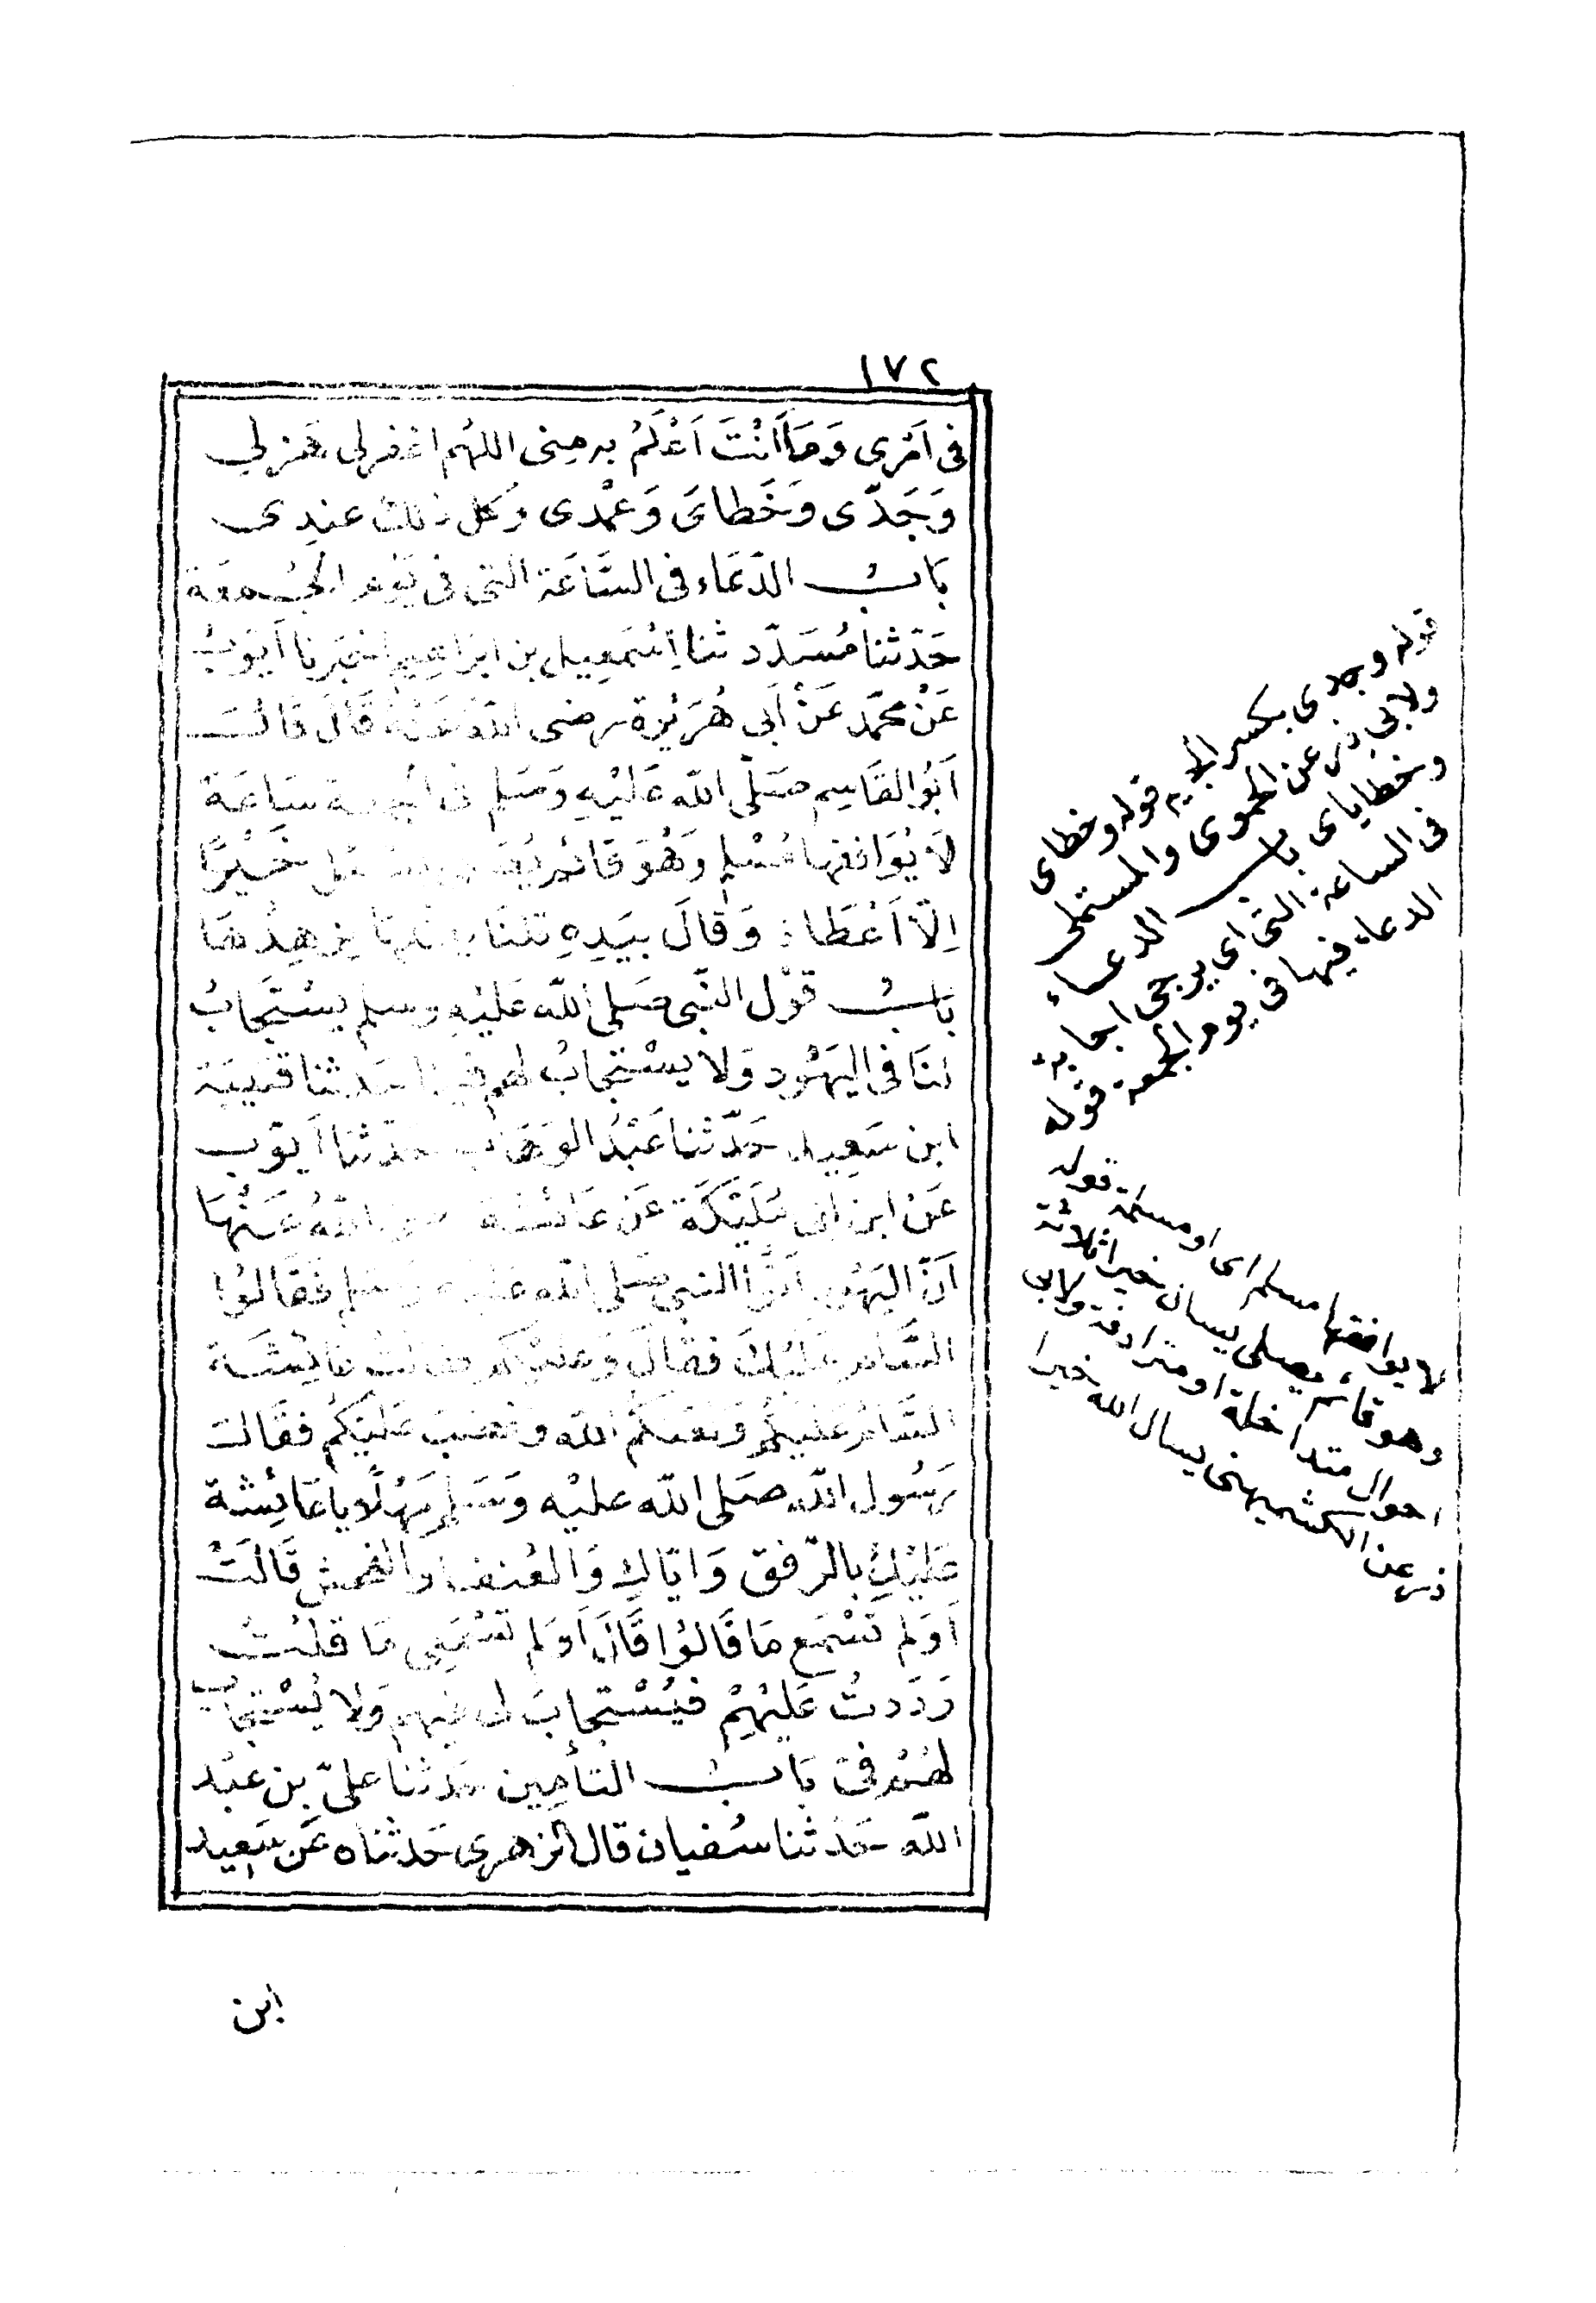 ١٧٢
فى اَمْرِى وَمَا اَنْتَ اَعْلَمُ بِهِ مِنِّى اللهُم اغفرلى هَزلى
وَجَدِّى وَخَطَاىَ وَعَمْدى وَكل ذلك عندِى
بَابُ الدّعَاء فى السَّاعَة التى فى يَوْم الجُمعَة
حَدّثنا مُسَدّد ثنا اِسْمَعِيل بن ابْرَاهِيم اخبَرنا اَيّوبُ
عَنْ محَمّد عَنْ اَبى هُرَيْرة رضى اللّه عَنْهُ قَالَ قَالَ
اَبُو القَاسِم صَلّى اللّه عَلَيْهِ وَسَلم فى الجمعة سَاعَة
لاَ يُوَافقها مُسْلم وَهُوَ قَائم يُصَلى يسْئَل خَيْرًا
اِلّا اَعْطَاهُ وَقَالَ بيَدِهِ قلنَا يقللهَا يزهِدُهَا
بابُ قوْل النّبى صَلى اللّه عَليْهِ وسلم يسْتَجَابُ
لنَا فى اليَهُود وَلا يسْتجَابُ لهم فينا حَدثنا قتيبَة
ابن سَعِيد حَدّثنا عَبْدُ الوَهّاب حَدّثنا اَيّوب
عَن ابن ابى مُلَيْكَة عَن عَائشَة رضى اللّهُ عَنْهَا
اَنّ اليَهُود اَتَوا النبى صَلى اللّه عَليْهِ وَسَلم فَقَالوُا
السَّام عَلَيْكَ فقَالَ وَعليْكم فقالت عَايْشَة
السَّامُ عَلَيْكُمْ وَلعَنَكُمُ اللّه وَغضِبَ عَليْكُم فقَالت
رَسُول اللّه صَلى اللّه عليْه وَسَلم مَهْلًا يا عَائِشة
عَليْكِ بالرّفق وَايّاكِ وَالعُنف اوالفحش قَالَتْ
اَوَلم تَسْمَع مَا قَالوُا قَالَ اَوَلم تسْمَعِى مَا قلتُ
رَدَدتُ عَلَيْهِمْ فيُسْتجابَ لى فيهم وَلا يُسْتجابُ
لهُمْ فىّ بَابُ التأمِين حَدثنا علىّ بن عبْد
اللّه حَدّثنا سُفيان قال الزهرى حَدثناه عَن سَعِيد
ابن
قوله وجدى بكسر الجيم قوله وخطاى
ولابى ذر عن الحموى والمستملى
وخطاياى باب الدعاء
فى الساعة التى اى يرجى اجابة
الدعاء فيها فى يوم الجمعة قوله
لا يوافقها مسلم اى او مسلمة قوله
وهو قائم يصلى يسال خيرا ثلاثة
احوال متداخلة او مترادفة ولابى
ذر عن الكشميهنى يسال الله خيرا